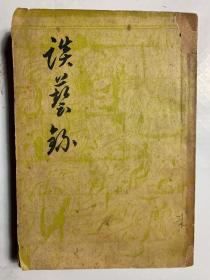 談藝錄